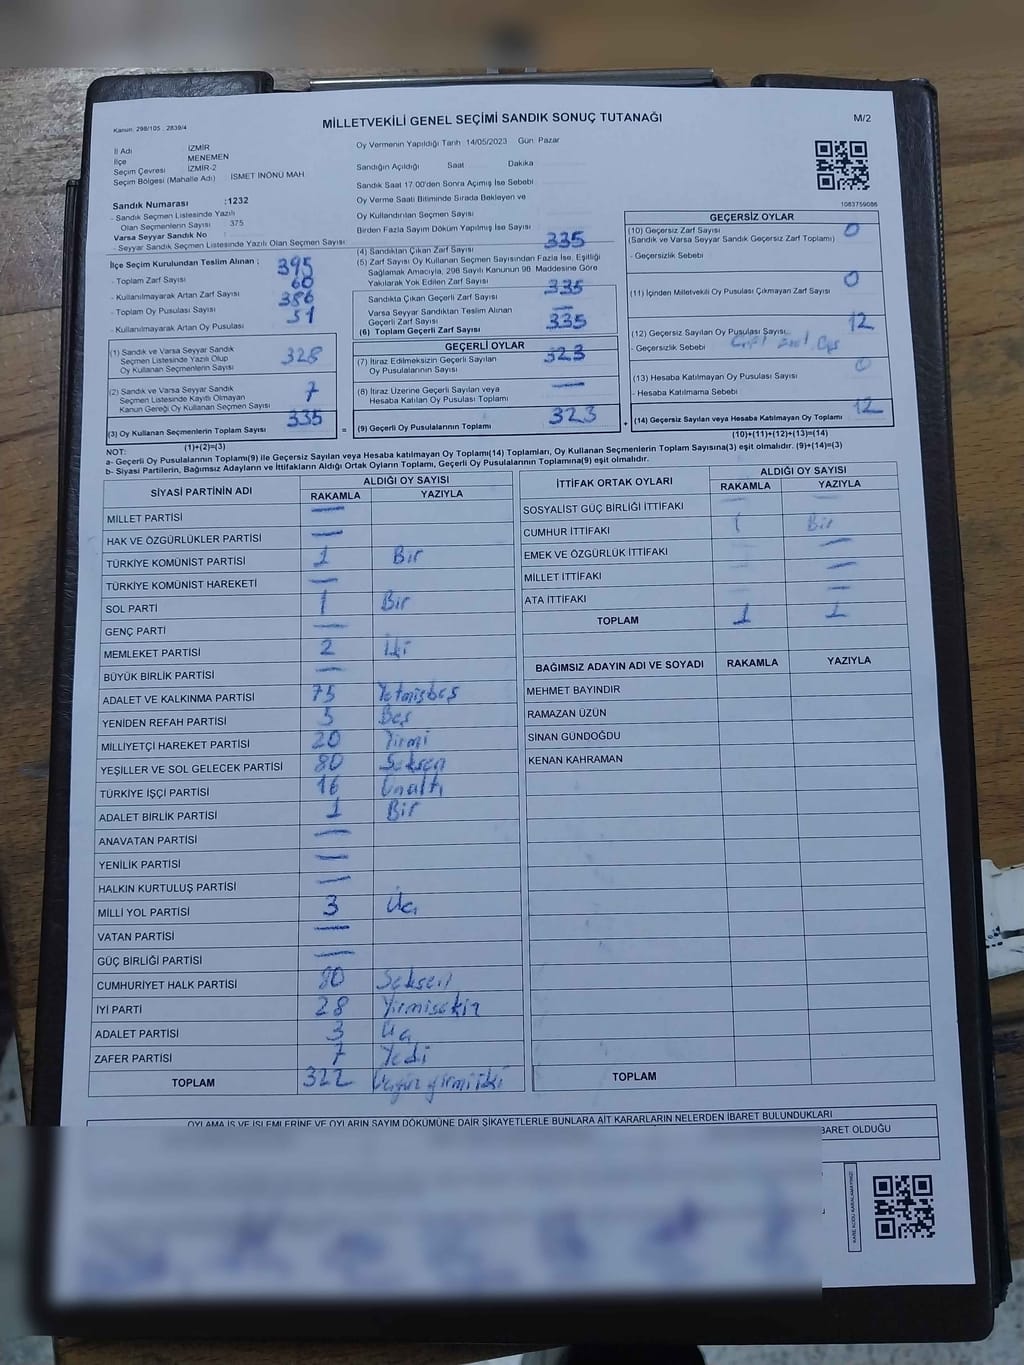 Kanun: 298/105 : 2839/4
MİLLETVEKİLİ GENEL SEÇİMİ SANDIK SONUÇ TUTANAĞI
M/2
İl Adı İZMİR
İlçe MENEMEN
Seçim Çevresi İZMİR-2
Seçim Bölgesi (Mahalle Adı) İSMET İNÖNÜ MAH.
Sandık Numarası :1232
- Sandık Seçmen Listesinde Yazılı
Olan Seçmenlerin Sayısı 375
Varsa Seyyar Sandık No :
- Seyyar Sandık Seçmen Listesinde Yazılı Olan Seçmen Sayısı
İlçe Seçim Kurulundan Teslim Alınan ;
- Toplam Zarf Sayısı 395
- Kullanılmayarak Artan Zarf Sayısı 60
- Toplam Oy Pusulası Sayısı 386
- Kullanılmayarak Artan Oy Pusulası 51
(1) Sandık ve Varsa Seyyar Sandık
Seçmen Listesinde Yazılı Olup
Oy Kullanan Seçmenlerin Sayısı 328
(2) Sandık ve Varsa Seyyar Sandık
Seçmen Listesinde Kayıtlı Olmayan
Kanun Gereği Oy Kullanan Seçmen Sayısı 7
(3) Oy Kullanan Seçmenlerin Toplam Sayısı 335
(1)+(2)=(3)
Oy Vermenin Yapıldığı Tarih 14/05/2023 Gün: Pazar
Sandığın Açıldığı Saat Dakika
Sandık Saat 17.00'den Sonra Açılmış İse Sebebi
Oy Verme Saati Bitiminde Sırada Bekleyen ve
Oy Kullandırılan Seçmen Sayısı
Birden Fazla Sayım Döküm Yapılmış İse Sayısı
(4) Sandıktan Çıkan Zarf Sayısı 335
(5) Zarf Sayısı Oy Kullanan Seçmen Sayısından Fazla İse, Eşitliği
Sağlamak Amacıyla, 298 Sayılı Kanunun 98. Maddesine Göre
Yakılarak Yok Edilen Zarf Sayısı
Sandıkta Çıkan Geçerli Zarf Sayısı 335
Varsa Seyyar Sandıktan Teslim Alınan
Geçerli Zarf Sayısı —
(6) Toplam Geçerli Zarf Sayısı 335
GEÇERLİ OYLAR
(7) İtiraz Edilmeksizin Geçerli Sayılan
Oy Pusulasının Sayısı 323
(8) İtiraz Üzerine Geçerli Sayılan veya
Hesaba Katılan Oy Pusulası Toplamı —
= (9) Geçerli Oy Pusulalarının Toplamı 323 +
1083759086
GEÇERSİZ OYLAR
(10) Geçersiz Zarf Sayısı 0
(Sandık ve Varsa Seyyar Sandık Geçersiz Zarf Toplamı)
- Geçersizlik Sebebi
(11) İçinden Milletvekili Oy Pusulası Çıkmayan Zarf Sayısı 0
(12) Geçersiz Sayılan Oy Pusulası Sayısı 12
- Geçersizlik Sebebi
(13) Hesaba Katılmayan Oy Pusulası Sayısı 0
- Hesaba Katılmama Sebebi
(14) Geçersiz Sayılan veya Hesaba Katılmayan Oy Toplamı 12
(10)+(11)+(12)+(13)=(14)
NOT:
a- Geçerli Oy Pusulalarının Toplamı(9) ile Geçersiz Sayılan veya Hesaba katılmayan Oy Toplamı(14) Toplamları, Oy Kullanan Seçmenlerin Toplam Sayısına(3) eşit olmalıdır. (9)+(14)=(3)
b- Siyasi Partilerin, Bağımsız Adayların ve İttifakların Aldığı Ortak Oyların Toplamı, Geçerli Oy Pusulalarının Toplamına(9) eşit olmalıdır.
SİYASİ PARTİNİN ADI ALDIĞI OY SAYISI
RAKAMLA YAZIYLA
MİLLET PARTİSİ —
HAK VE ÖZGÜRLÜKLER PARTİSİ —
TÜRKİYE KOMÜNİST PARTİSİ 1 Bir
TÜRKİYE KOMÜNİST HAREKETİ —
SOL PARTİ 1 Bir
GENÇ PARTİ —
MEMLEKET PARTİSİ 2 İki
BÜYÜK BİRLİK PARTİSİ —
ADALET VE KALKINMA PARTİSİ 75 Yetmişbeş
YENİDEN REFAH PARTİSİ 5 Beş
MİLLİYETÇİ HAREKET PARTİSİ 20 Yirmi
YEŞİLLER VE SOL GELECEK PARTİSİ 80 Seksen
TÜRKİYE İŞÇİ PARTİSİ 16 Onaltı
ADALET BİRLİK PARTİSİ 1 Bir
ANAVATAN PARTİSİ —
YENİLİK PARTİSİ —
HALKIN KURTULUŞ PARTİSİ —
MİLLİ YOL PARTİSİ 3 Üç
VATAN PARTİSİ —
GÜÇ BİRLİĞİ PARTİSİ —
CUMHURİYET HALK PARTİSİ 80 Seksen
İYİ PARTİ 28 Yirmisekiz
ADALET PARTİSİ 3 Üç
ZAFER PARTİSİ 7 Yedi
TOPLAM 322 Üçyüz yirmi iki
İTTİFAK ORTAK OYLARI ALDIĞI OY SAYISI
RAKAMLA YAZIYLA
SOSYALİST GÜÇ BİRLİĞİ İTTİFAKI — —
CUMHUR İTTİFAKI 1 Bir
EMEK VE ÖZGÜRLÜK İTTİFAKI — —
MİLLET İTTİFAKI — —
ATA İTTİFAKI — —
TOPLAM 1 1
BAĞIMSIZ ADAYIN ADI VE SOYADI RAKAMLA YAZIYLA
MEHMET BAYINDIR
RAMAZAN ÜZÜN
SİNAN GÜNDOĞDU
KENAN KAHRAMAN
TOPLAM
OYLAMA İŞ VE İŞLEMLERİNE VE OYLARIN SAYIM DÖKÜMÜNE DAİR ŞİKAYETLERLE BUNLARA AİT KARARLARIN NELERDEN İBARET BULUNDUKLARI
BARET OLDUĞU
KARE KODU KARALAMAYINIZ!